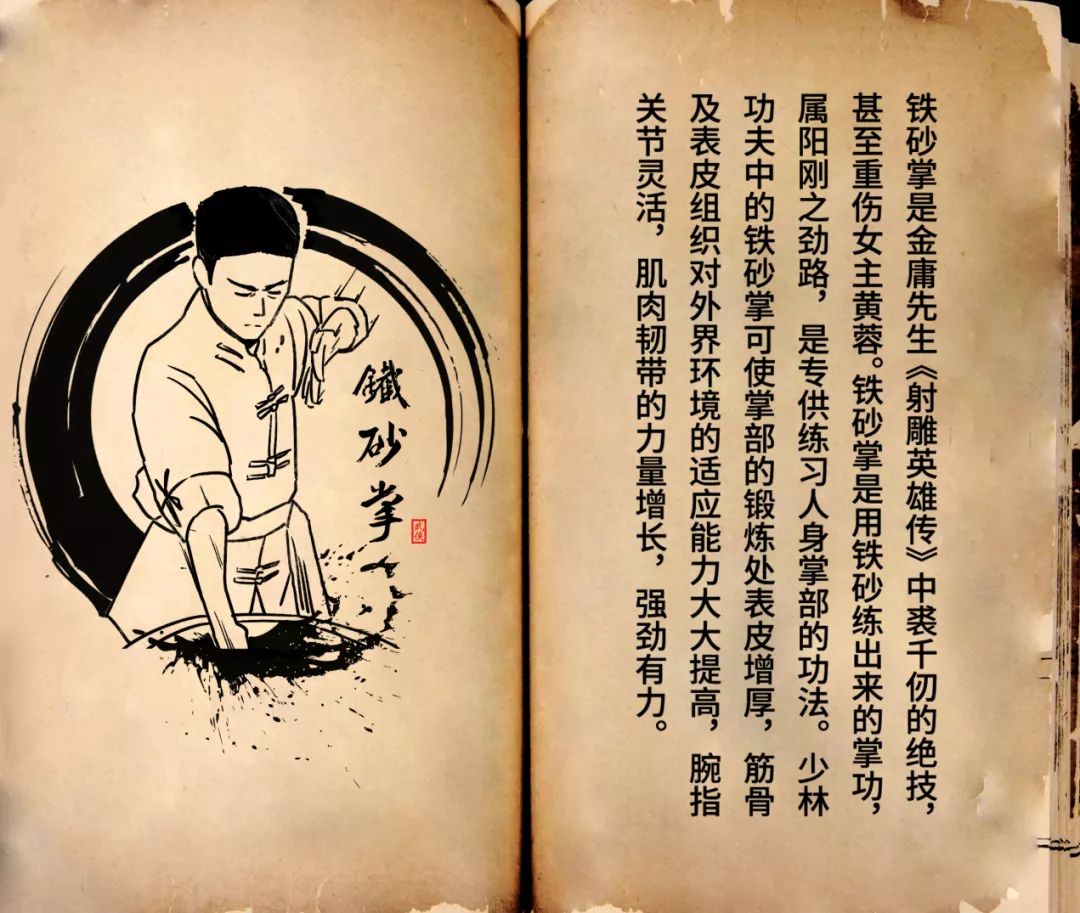 鐵砂掌
武侠
铁砂掌是金庸先生《射雕英雄传》中裘千仞的绝技，
甚至重伤女主黄蓉。铁砂掌是用铁砂练出来的掌功，
属阳刚之劲路，是专供练习人身掌部的功法。少林
功夫中的铁砂掌可使掌部的锻炼处表皮增厚，筋骨
及表皮组织对外界环境的适应能力大大提高，腕指
关节灵活，肌肉韧带的力量增长，强劲有力。